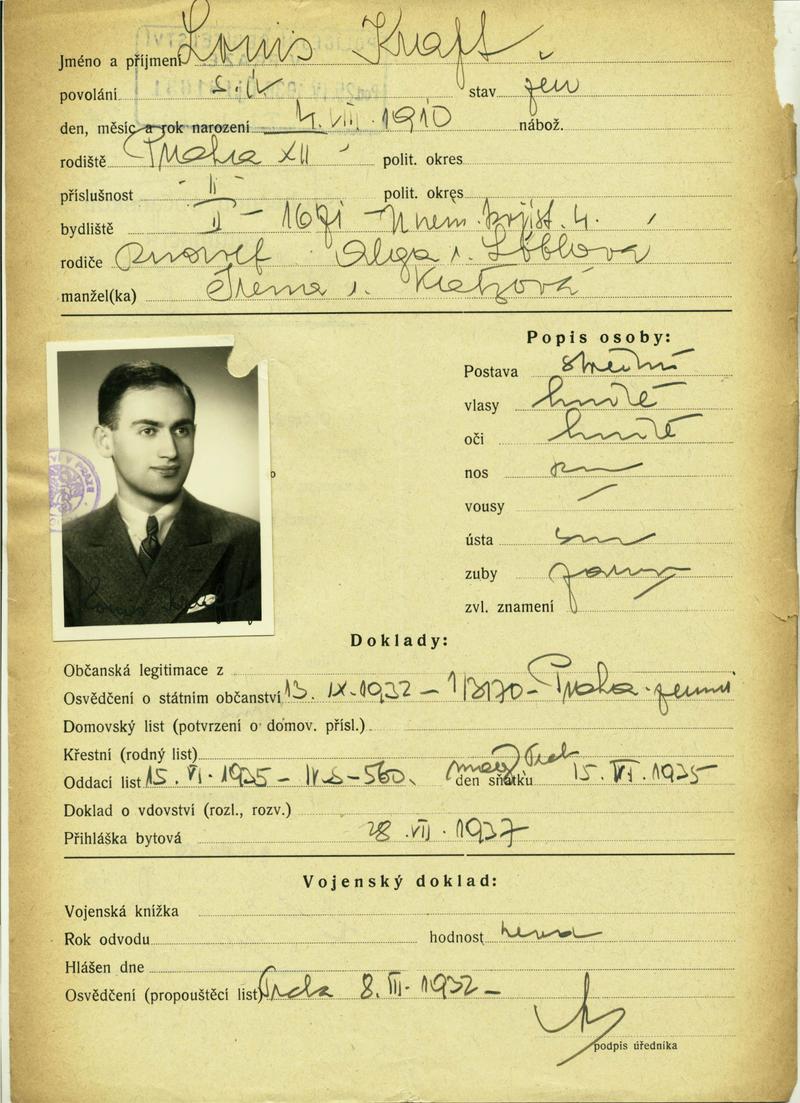 Jméno a příjmení Louis Kraft
povolání s. úř. stav žen
den, měsíc a rok narození 4. VII. 1910 nábož.
rodiště Praha XII polit. okres
příslušnost II polit. okres
bydliště II - 1671
rodiče Olga r. Löblová
manžel(ka) Irena r.
Popis osoby:
Postava střední
vlasy hnědé
oči hnědé
nos
vousy
ústa
zuby
zvl. znamení
Doklady:
Občanská legitimace z
Osvědčení o státním občanství 13. IX. 1932 - Praha
Domovský list (potvrzení o domov. přísl.)
Křestní (rodný list)
Oddací list 15. VI. 1935 - den sňatku 15. VI. 1935
Doklad o vdovství (rozl., rozv.)
Přihláška bytová 28. VII. 1937
Vojenský doklad:
Vojenská knížka
Rok odvodu hodnost
Hlášen dne
Osvědčení (propouštěcí list) 8. III. 1932 -
podpis úředníka